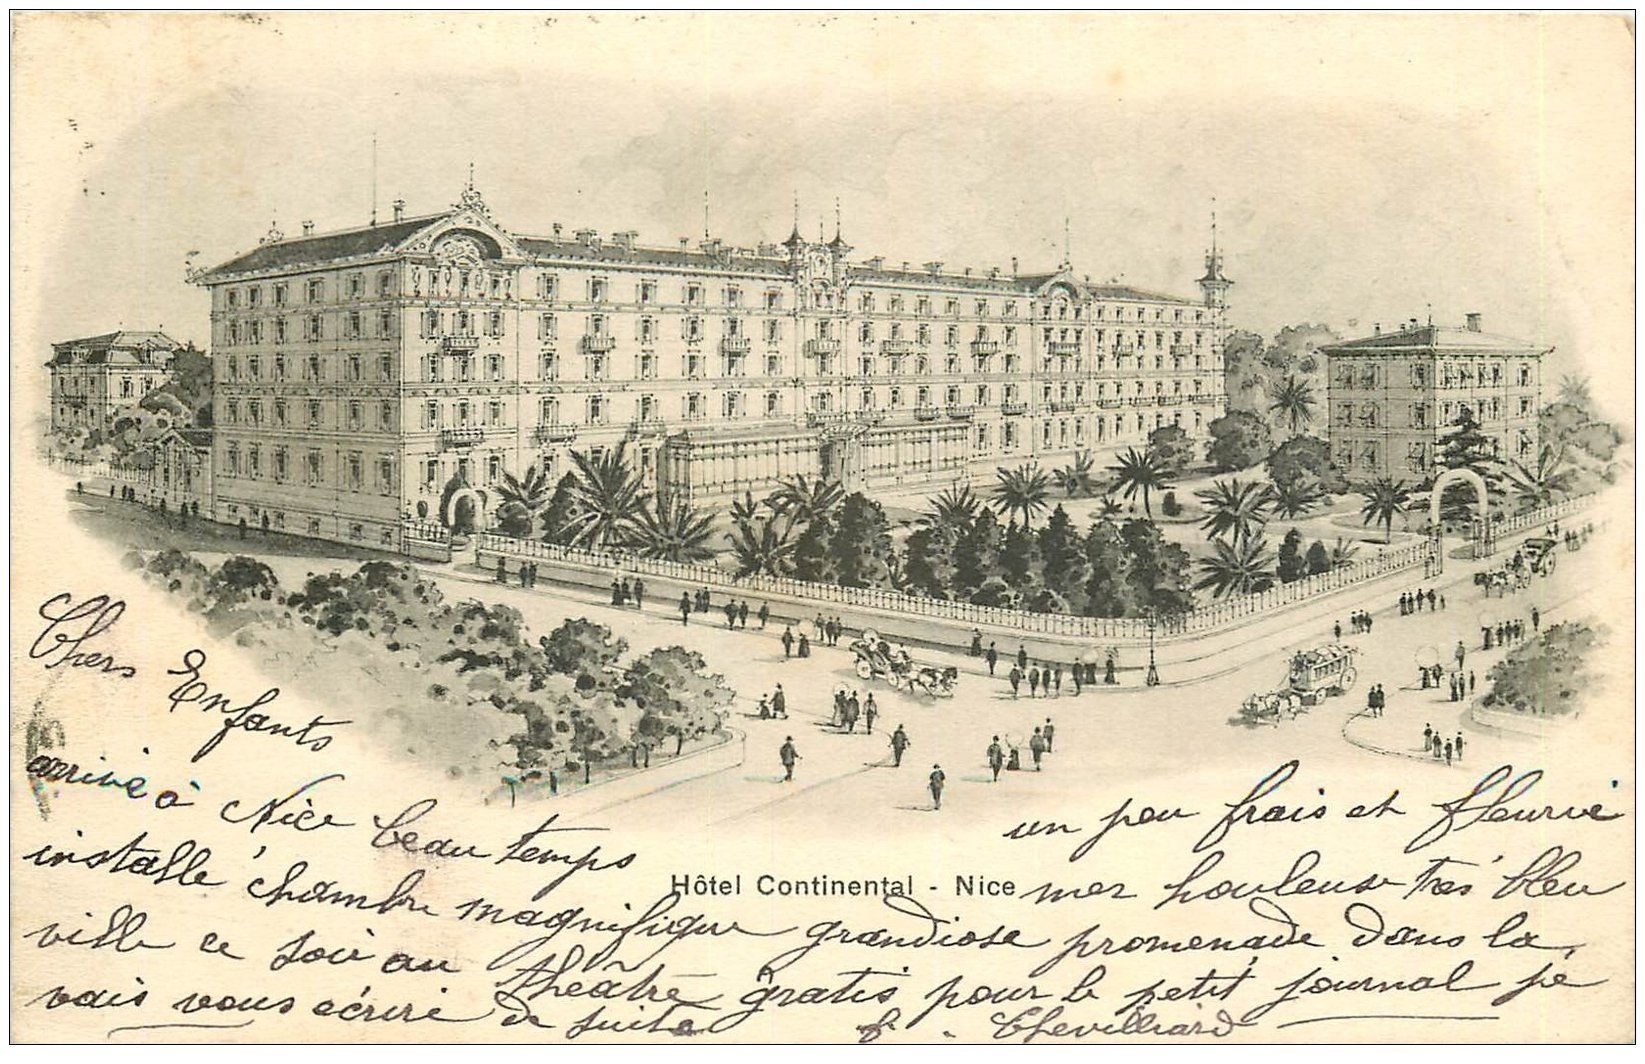 Chers Enfants
arrivé à Nice beau temps un peu frais et fleurie
Hôtel Continental - Nice
installé chambre magnifique grandiose mer houleuse trés bleu
ville ce soir au théâtre gratis promenade dans la
vais vous écrire de suite pour le petit journal je
Chevilliard